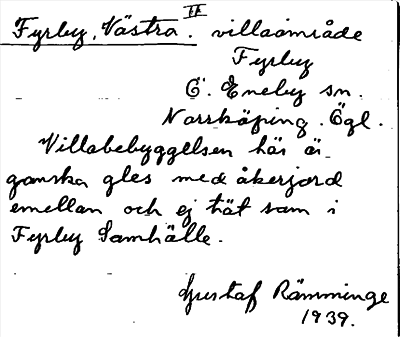 Fyrby, Västra. II villaområde
Fyrby
Ö. Eneby sn.
Norrköping. Ögl.
Villabebyggelsen här är
ganska gles med åkerjord
emellan och ej tät som i
Fyrby Samhälle.
Gustaf Rämminge
1939.